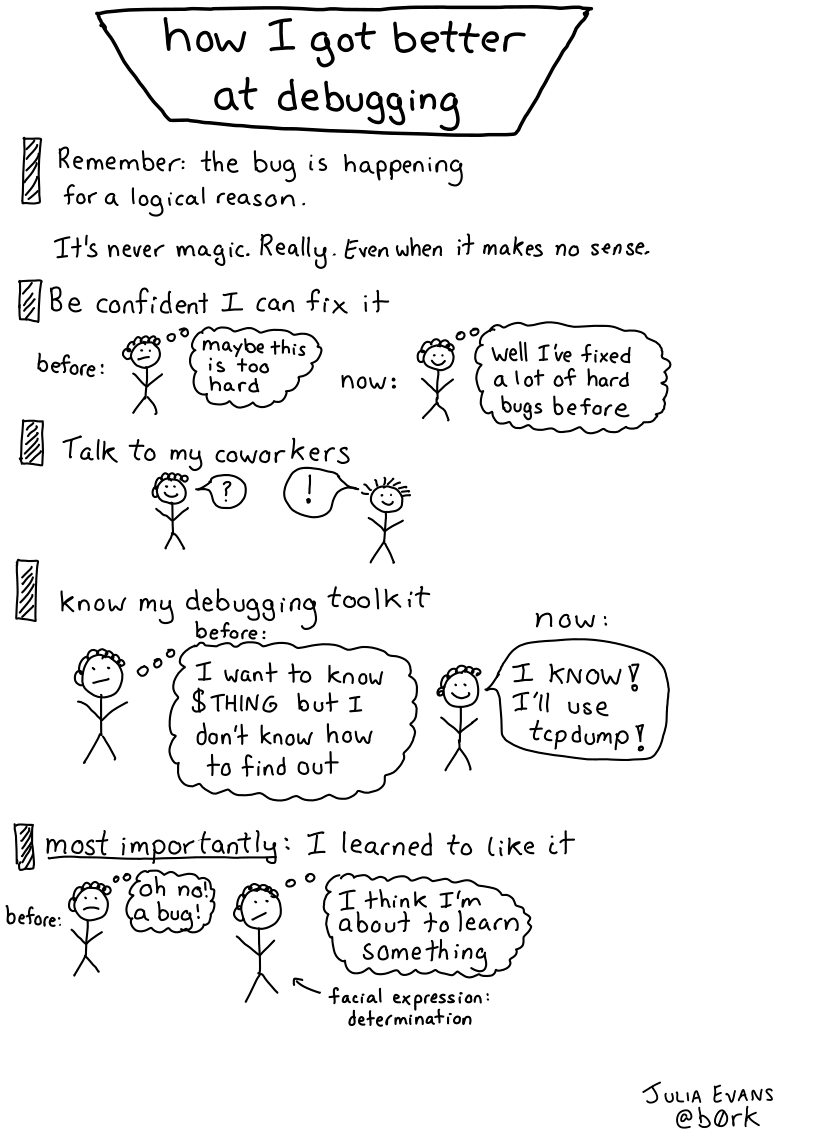 how I got better
at debugging
Remember: the bug is happening
for a logical reason.
It's never magic. Really. Even when it makes no sense.
Be confident I can fix it
before:
maybe this
is too
hard
now:
well I've fixed
a lot of hard
bugs before
Talk to my coworkers
?
!
know my debugging toolkit
before:
I want to know
$THING but I
don't know how
to find out
now:
I KNOW!
I'll use
tcpdump!
most importantly: I learned to like it
before:
oh no!
a bug!
I think I'm
about to learn
something
facial expression:
determination
JULIA EVANS
@b0rk